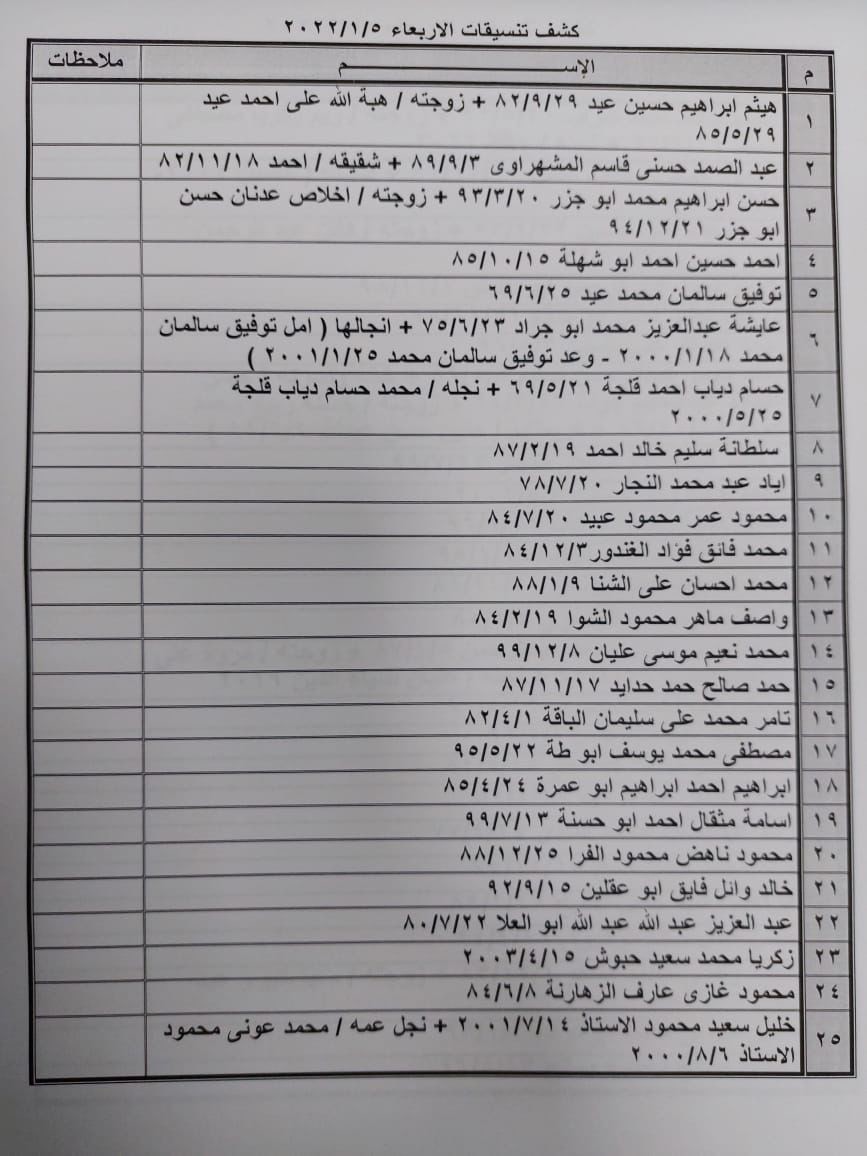 كشف تنسيقات الاربعاء ٢٠٢٢/١/٥
م الإســـــم ملاحظات
١ هيثم ابراهيم حسين عيد ٨٢/٩/٢٩ + زوجته / هبة الله على احمد عيد
٨٥/٥/٢٩
٢ عبد الصمد حسنى قاسم المشهراوى ٨٩/٩/٣ + شقيقه / احمد ٨٢/١١/١٨
٣ حسن ابراهيم محمد ابو جزر ٩٣/٣/٢٠ + زوجته / اخلاص عدنان حسن
ابو جزر ٩٤/١٢/٢١
٤ احمد حسين احمد ابو شهلة ٨٥/١٠/١٥
٥ توفيق سالمان محمد عيد ٦٩/٦/٢٥
٦ عايشة عبدالعزيز محمد ابو جراد ٧٥/٦/٢٣ + انجالها ( امل توفيق سالمان
محمد ٢٠٠٠/١/١٨ - وعد توفيق سالمان محمد ٢٠٠١/١/٢٥ )
٧ حسام دياب احمد قلجة ٦٩/٥/٢١ + نجله / محمد حسام دياب قلجة
٢٠٠٠/٥/٢٥
٨ سلطانة سليم خالد احمد ٨٧/٢/١٩
٩ اياد عبد محمد النجار ٧٨/٧/٢٠
١٠ محمود عمر محمود عبيد ٨٤/٧/٢٠
١١ محمد فائق فؤاد الغندور ٨٤/١٢/٣
١٢ محمد احسان على الشنا ٨٨/١/٩
١٣ واصف ماهر محمود الشوا ٨٤/٢/١٩
١٤ محمد نعيم موسى عليان ٩٩/١٢/٨
١٥ حمد صالح حمد حدايد ٨٧/١١/١٧
١٦ تامر محمد على سليمان الباقة ٨٢/٤/١
١٧ مصطفى محمد يوسف ابو طة ٩٥/٥/٢٢
١٨ ابراهيم احمد ابراهيم ابو عمرة ٨٥/٤/٢٤
١٩ اسامة مثقال احمد ابو حسنة ٩٩/٧/١٣
٢٠ محمود ناهض محمود الفرا ٨٨/١٢/٢٥
٢١ خالد وائل فايق ابو عقلين ٩٢/٩/١٥
٢٢ عبد العزيز عبد الله عبد الله ابو العلا ٨٠/٧/٢٢
٢٣ زكريا محمد سعيد حبوش ٢٠٠٣/٤/١٥
٢٤ محمود غازى عارف الزهارنة ٨٤/٦/٨
٢٥ خليل سعيد محمود الاستاذ ٢٠٠١/٧/١٤ + نجل عمه / محمد عونى محمود
الاستاذ ٢٠٠٠/٨/٦